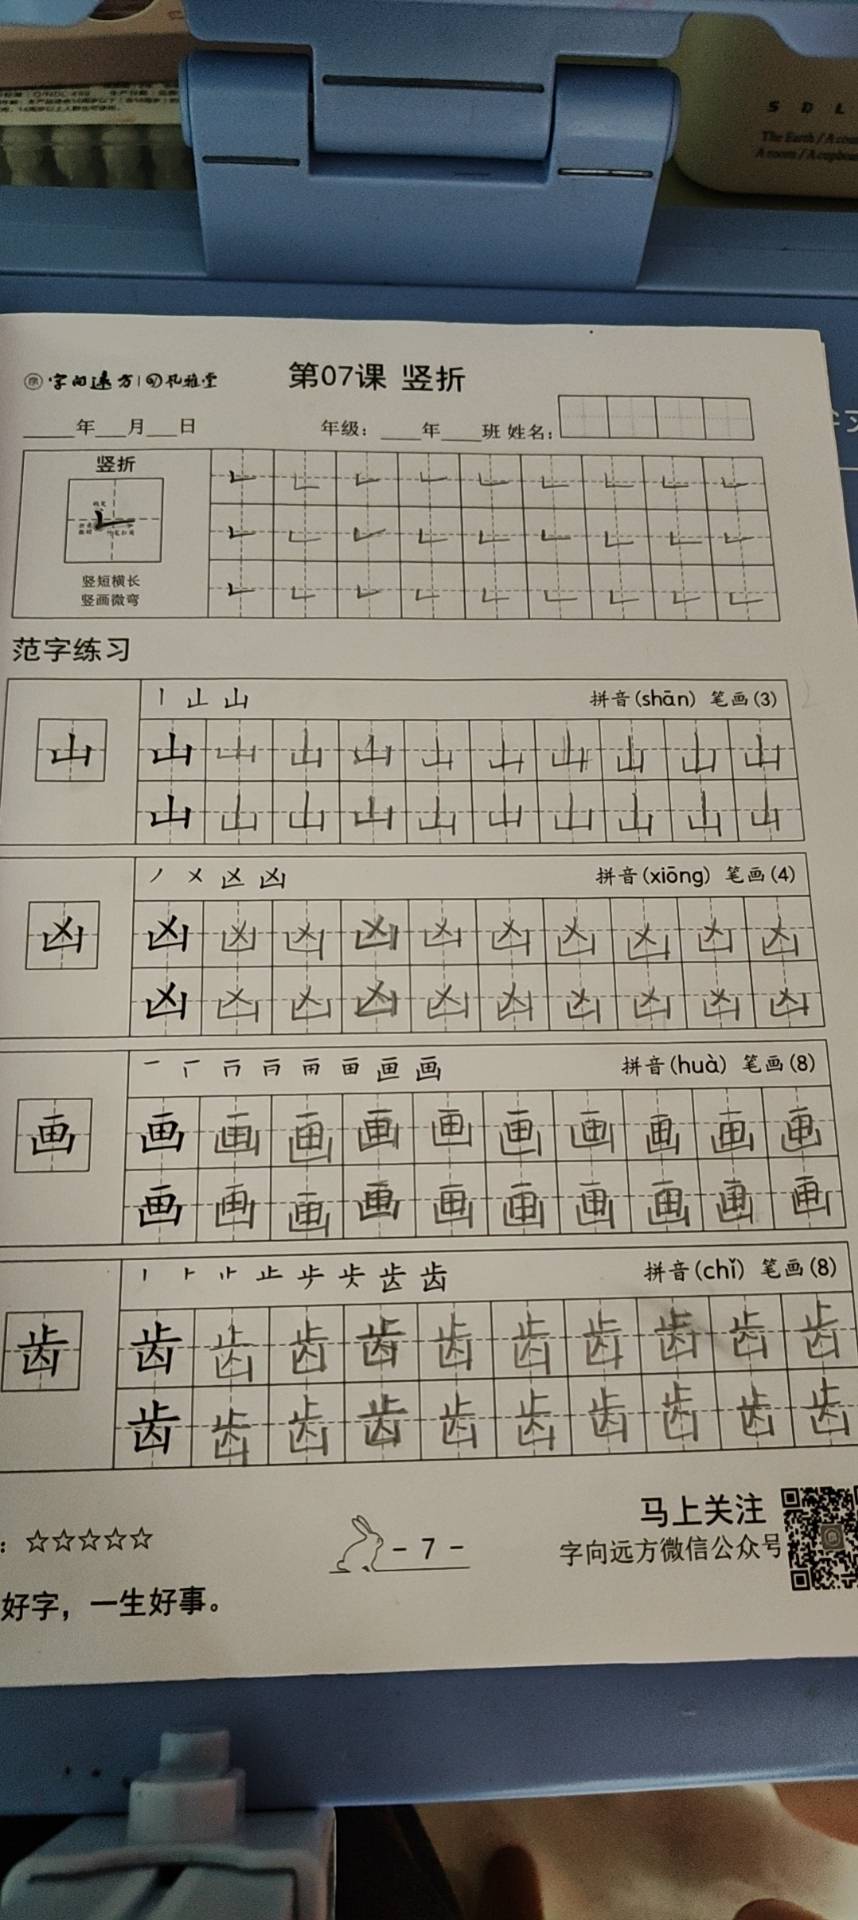 S D L
The Earth / A
A room / A cupboa
字向远方 孔雅堂
第07课 竖折
年 月 日
年级： 年 班 姓名：
竖折
竖短横长
竖画微弯
范字练习
拼音(shān) 笔画(3)
山 山 山 山 山 山 山 山 山 山 山
山 山 山 山 山 山 山 山 山 山
拼音(xiōng) 笔画(4)
凶 凶 凶 凶 凶 凶 凶 凶 凶 凶 凶
凶 凶 凶 凶 凶 凶 凶 凶 凶 凶
拼音(huà) 笔画(8)
画 画 画 画 画 画 画 画 画 画 画
画 画 画 画 画 画 画 画 画 画
拼音(chǐ) 笔画(8)
齿 齿 齿 齿 齿 齿 齿 齿 齿 齿 齿
齿 齿 齿 齿 齿 齿 齿 齿 齿 齿
：☆☆☆☆☆
- 7 -
马上关注
字向远方微信公众号
好字，一生好事。